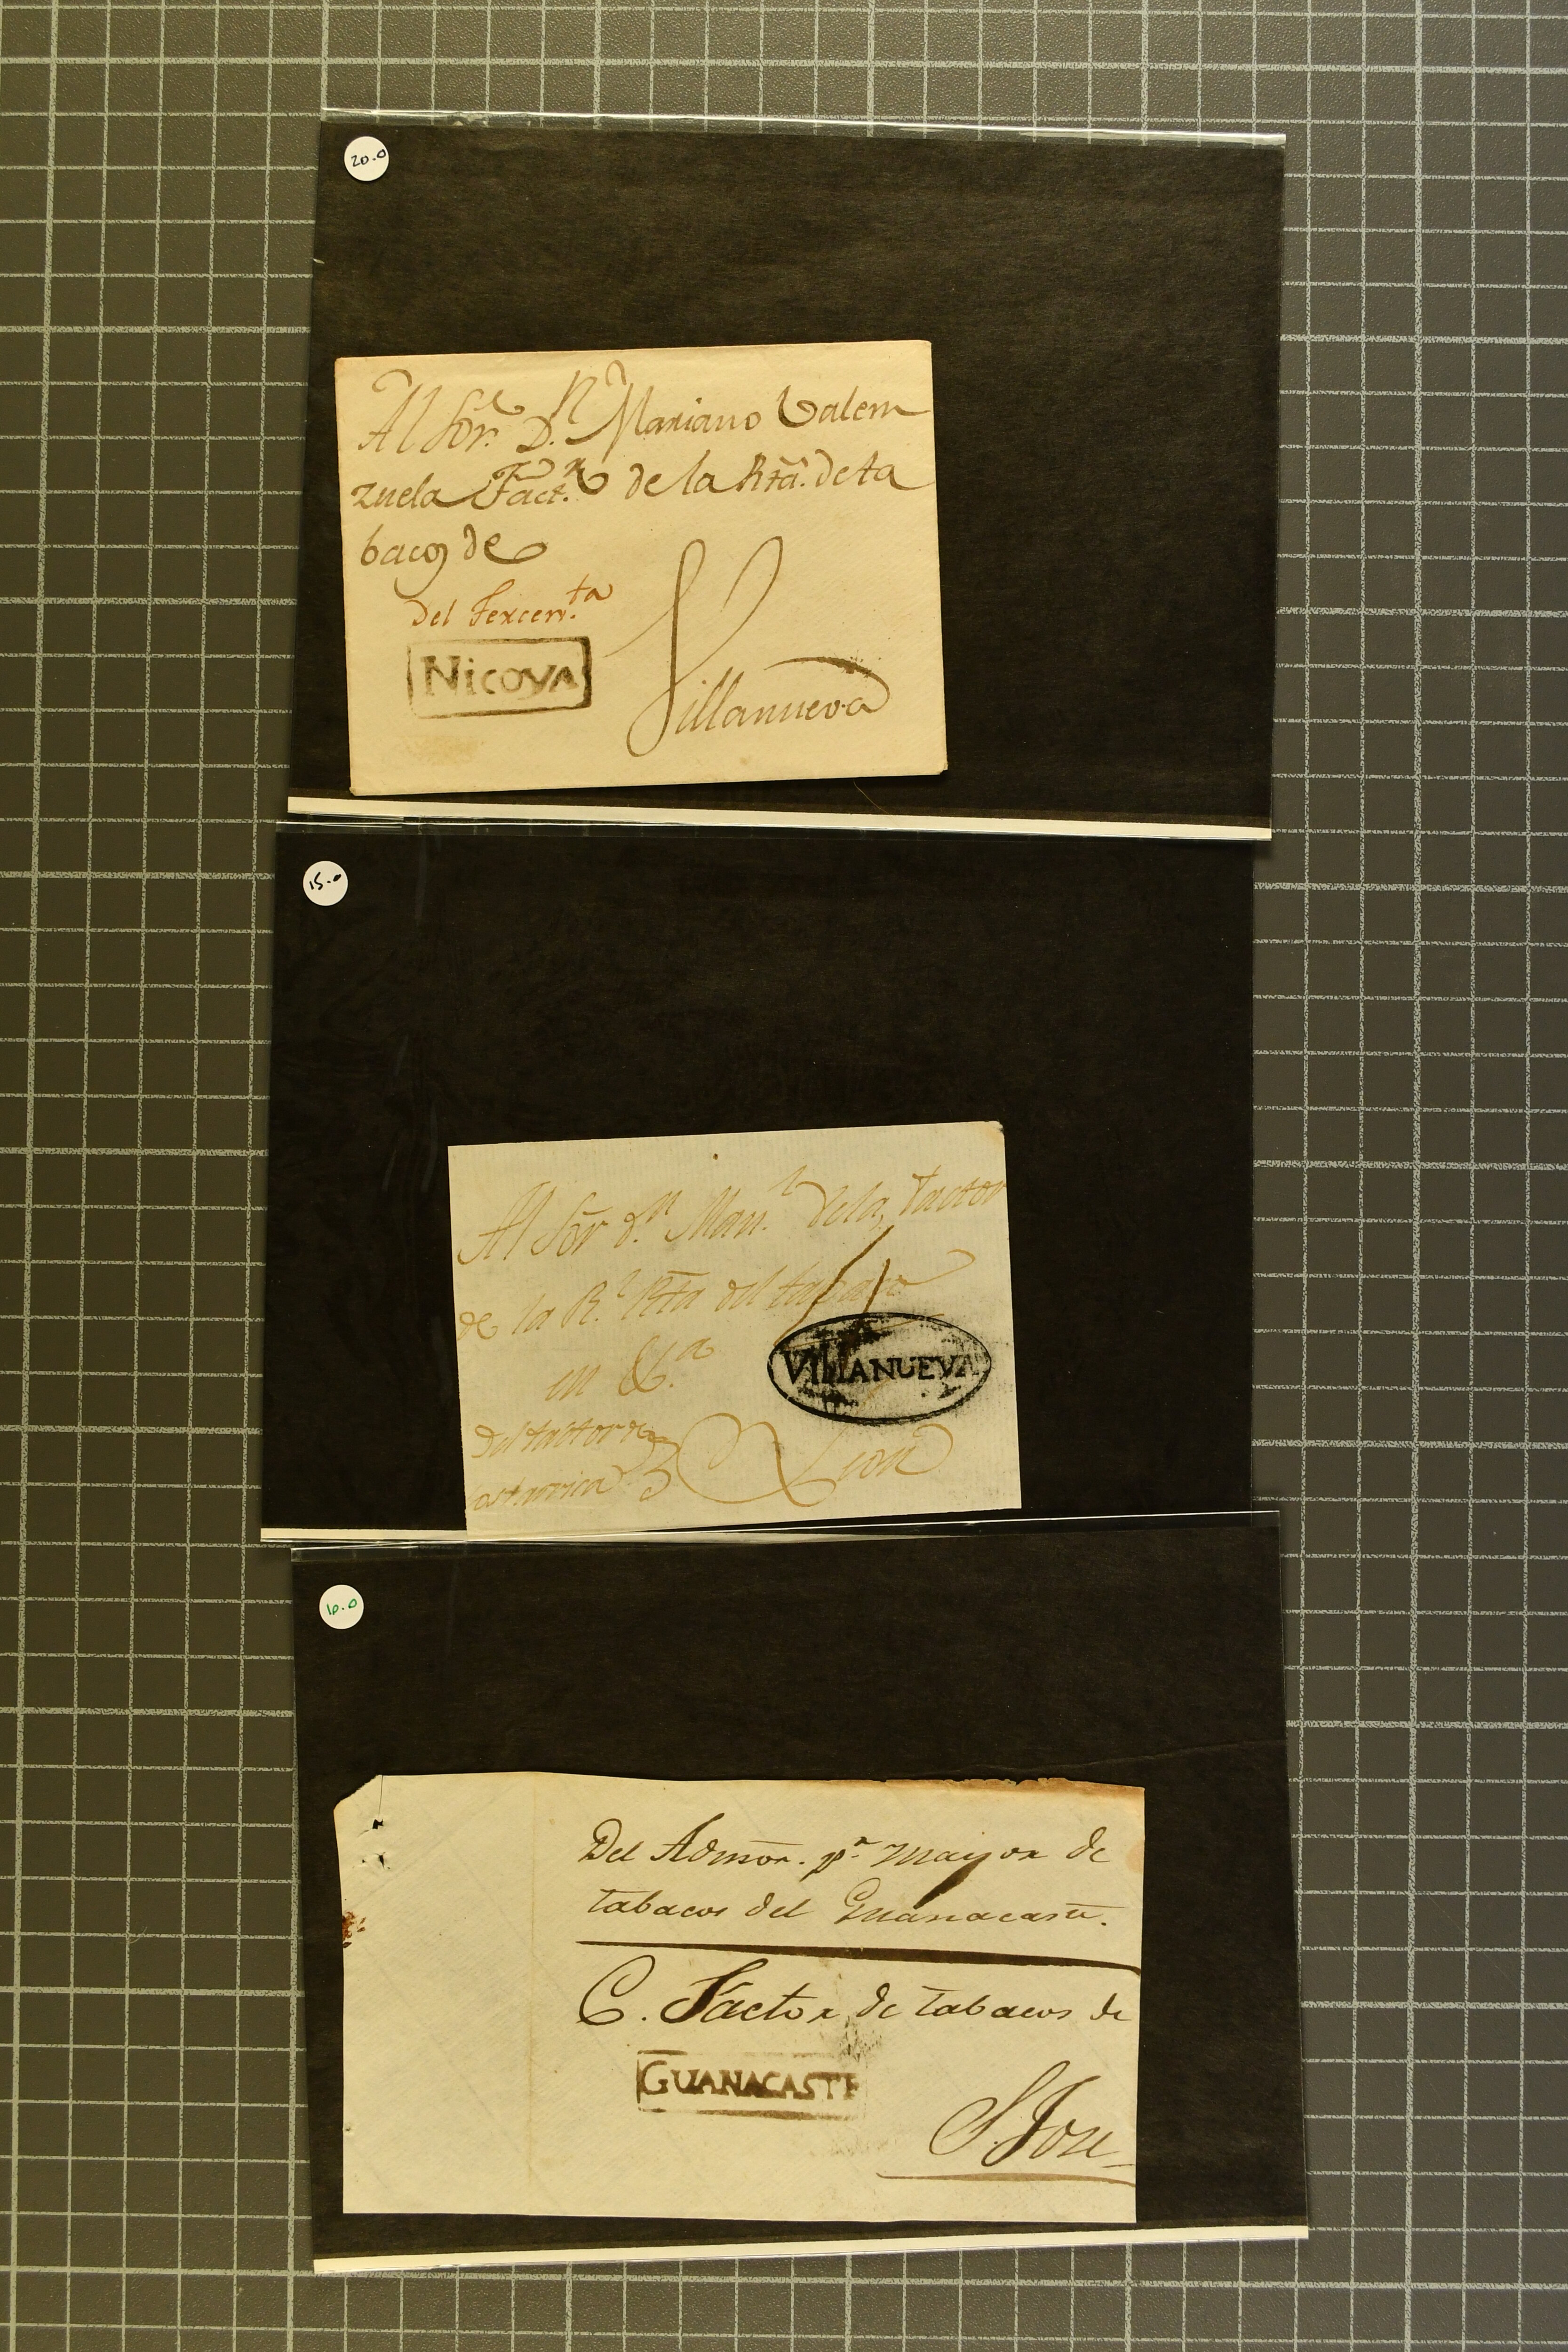 20.0
Al Sor. D.n Mariano Valem
zuela Fact.r de la Rta. de ta
bacos de
Del Tercen.ta
NICOYA
Villanueva
15.0
Al Sor d.n Man.l de la
de la R.l Rta del tabaco
en
VILLANUEVA
Del factor de
costarrica
Leon
10.0
Del Admor. p.r Mayor de
tabacos del Guanacaste.
C. Factor de tabacos de
GUANACASTE
S. Jose